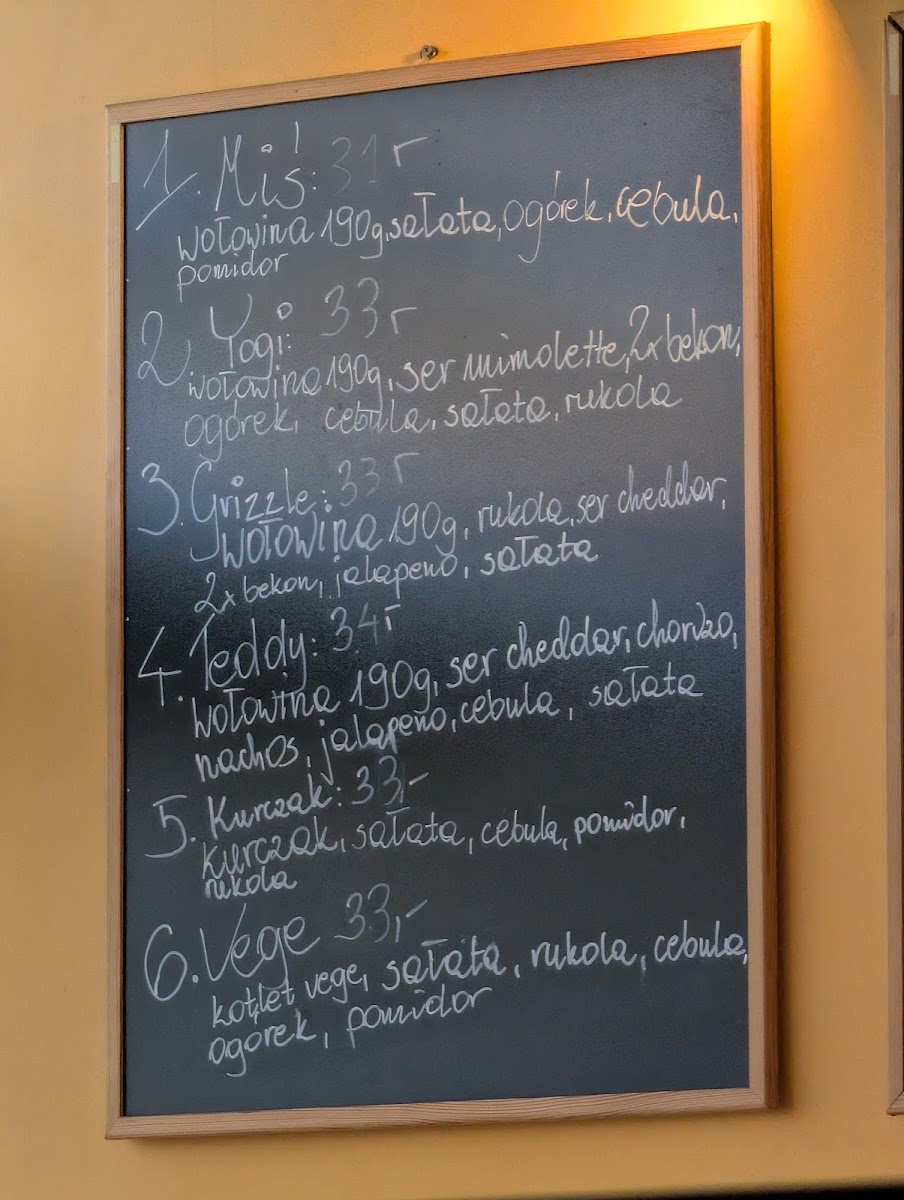 1. Miś: 31,-
wołowina 190g, sałata, ogórek, cebula,
pomidor
2. Yogi: 33,-
wołowina 190g, ser mimolette, 2x bekon,
ogórek, cebula, sałata, rukola
3. Grizzle: 33,-
wołowina 190g, rukola, ser cheddar,
2x bekon, jalapeno, sałata
4. Teddy: 34,-
wołowina 190g, ser cheddar, chorizo,
nachos, jalapeno, cebula, sałata
5. Kurczak: 33,-
kurczak, sałata, cebula, pomidor,
rukola
6. Vege 33,-
kotlet vege, sałata, rukola, cebula,
ogorek, pomidor